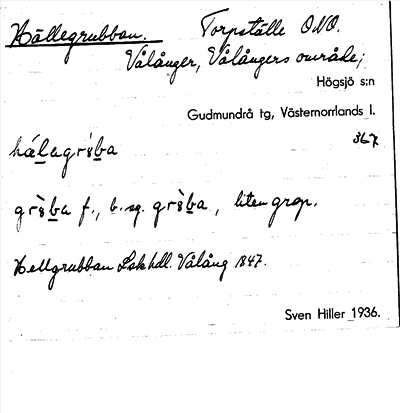 Hällegrubban. Torpställe ONO.
Vålånger, Vålångers område;
Högsjö s:n
Gudmundrå tg, Västernorrlands l.
367
gröba f., b. sg. gröba, liten grop.
Hellgrubban Lskhdl. Vålång 1847.
Sven Hiller 1936.